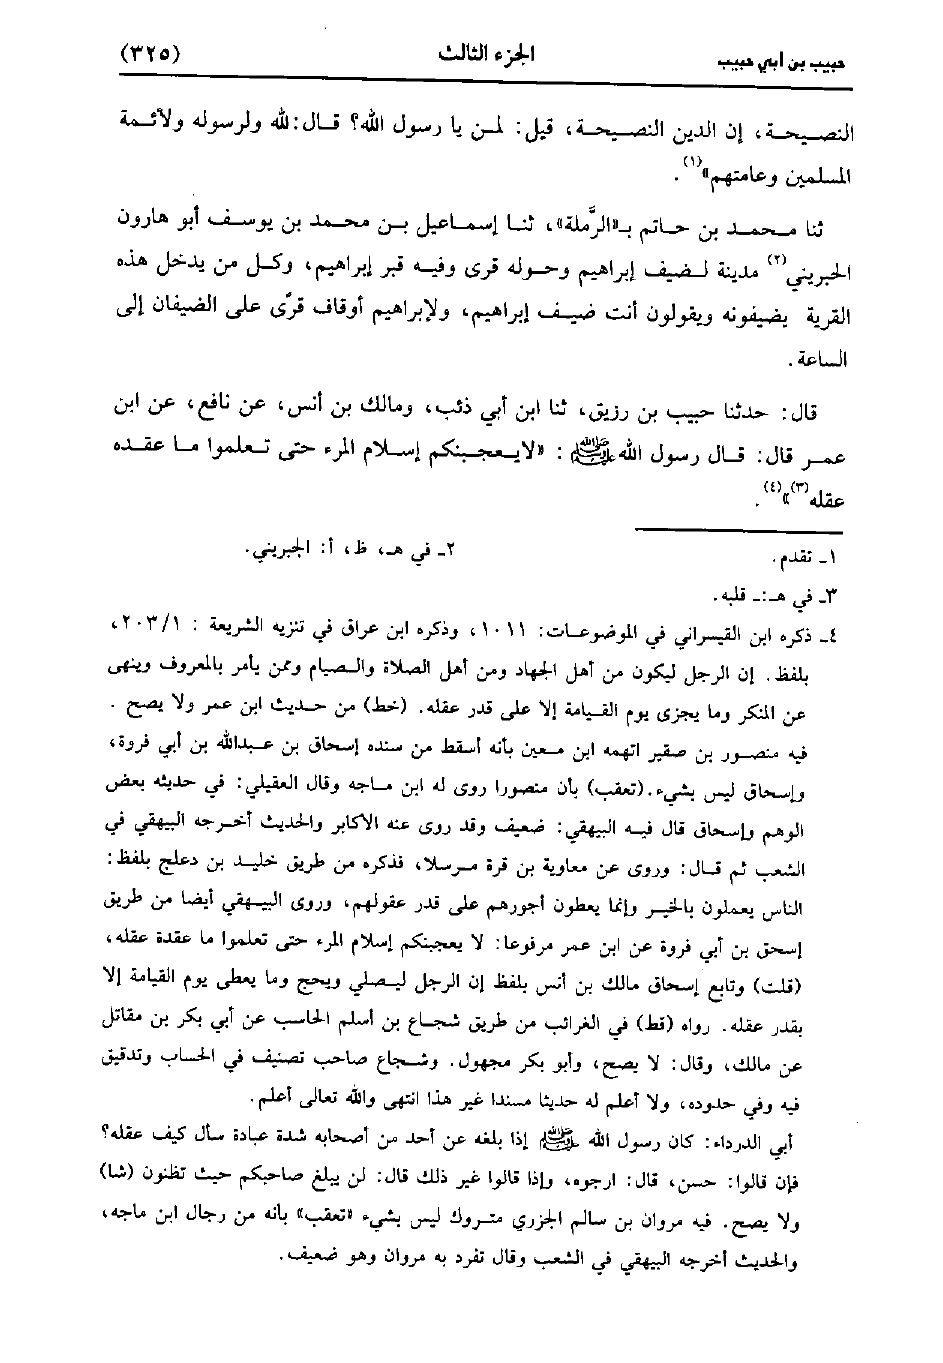 حبيب بن أبي حبيب الجزء الثالث (٣٢٥)
النصيحة، إن الدين النصيحة، قيل: لمن يا رسول الله؟ قال: لله ولرسوله ولأئمة
المسلمين وعامتهم»(١).
ثنا محمد بن حاتم بـ«الرَّملة»، ثنا إسماعيل بن محمد بن يوسف أبو هارون
الجبريني(٢) مدينة لضيف إبراهيم وحوله قرى وفيه قبر إبراهيم، وكل من يدخل هذه
القرية يضيفونه ويقولون أنت ضيف إبراهيم، ولإبراهيم أوقاف قرًى على الضيفان إلى
الساعة.
قال: حدثنا حبيب بن رزيق، ثنا ابن أبي ذئب، ومالك بن أنس، عن نافع، عن ابن
عمر قال: قال رسول الله ﷺ: «لا يعجبنكم إسلام المرء حتى تعلموا ما عقده
عقله(٣)»(٤).
١ـ تقدم. ٢ـ في هـ، ظ، أ: الجبريني.
٣ـ في هـ:ـ قلبه.
٤ـ ذكره ابن القيسراني في الموضوعات: ١٠١١، وذكره ابن عراق في تنزيه الشريعة : ٢٠٣/١،
بلفظ. إن الرجل ليكون من أهل الجهاد ومن أهل الصلاة والصيام وممن يأمر بالمعروف وينهى
عن المنكر وما يجزى يوم القيامة إلا على قدر عقله. (خط) من حديث ابن عمر ولا يصح .
فيه منصور بن صقير اتهمه ابن معين بأنه أسقط من سنده إسحاق بن عبدالله بن أبي فروة،
وإسحاق ليس بشيء. (تعقب) بأن منصورا روى له ابن ماجه وقال العقيلي: في حديثه بعض
الوهم وإسحاق قال فيه البيهقي: ضعيف وقد روى عنه الأكابر والحديث أخرجه البيهقي في
الشعب ثم قال: وروى عن معاوية بن قرة مرسلا، فذكره من طريق خليد بن دعلج بلفظ:
الناس يعملون بالخير وإنما يعطون أجورهم على قدر عقولهم، وروى البيهقي أيضا من طريق
إسحق بن أبي فروة عن ابن عمر مرفوعا: لا يعجبنكم إسلام المرء حتى تعلموا ما عقدة عقله،
(قلت) وتابع إسحاق مالك بن أنس بلفظ إن الرجل ليصلي ويحج وما يعطى يوم القيامة إلا
بقدر عقله. رواه (قط) في الغرائب من طريق شجاع بن أسلم الحاسب عن أبي بكر بن مقاتل
عن مالك، وقال: لا يصح، وأبو بكر مجهول. وشجاع صاحب تصنيف في الحساب وتدقيق
فيه وفي حدوده، ولا أعلم له حديثا مسندا غير هذا انتهى والله تعالى أعلم.
أبي الدرداء: كان رسول الله ﷺ إذا بلغه عن أحد من أصحابه شدة عبادة سأل كيف عقله؟
فإن قالوا: حسن، قال: ارجوه، وإذا قالوا غير ذلك قال: لن يبلغ صاحبكم حيث تظنون (شا)
ولا يصح. فيه مروان بن سالم الجزري متروك ليس بشيء «تعقب» بأنه من رجال ابن ماجه،
والحديث أخرجه البيهقي في الشعب وقال تفرد به مروان وهو ضعيف.